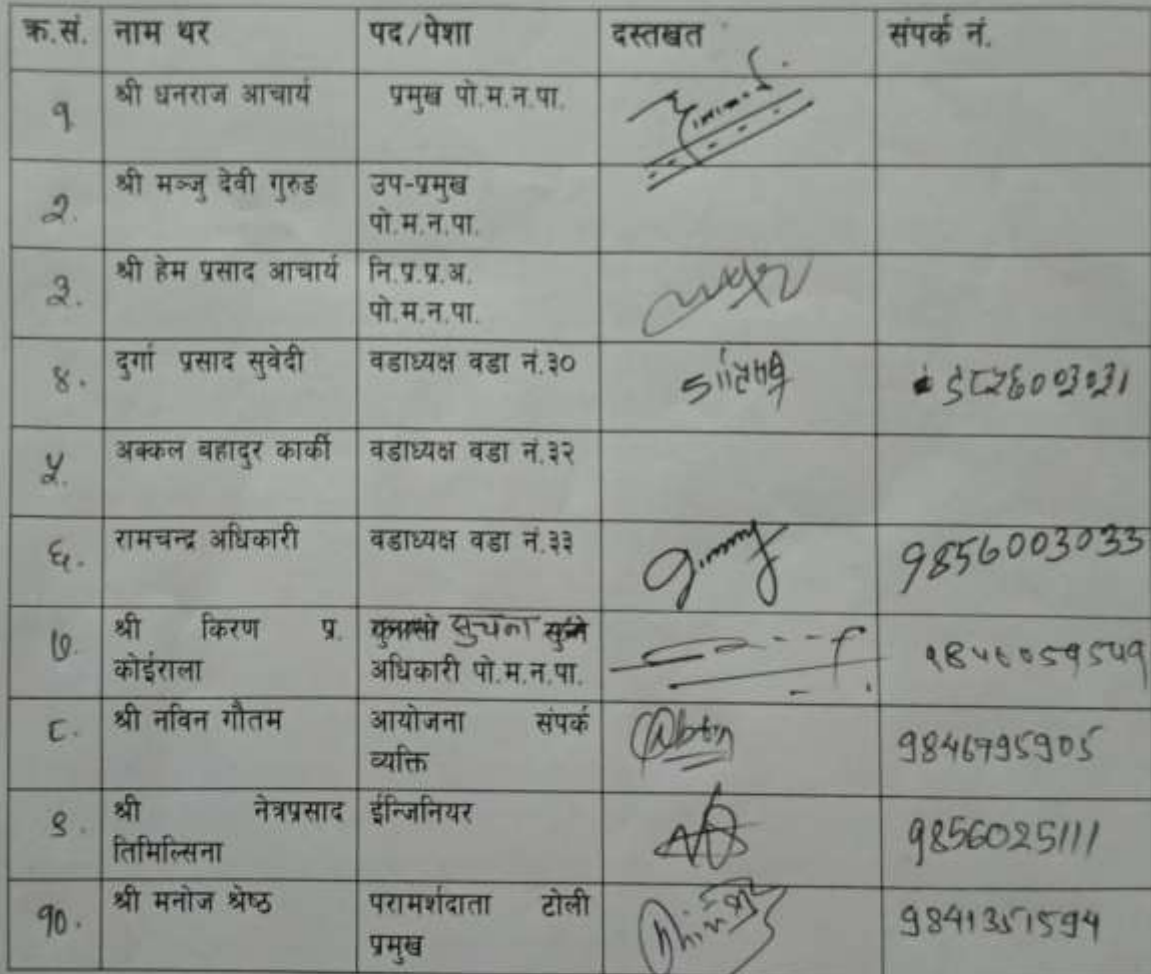 क्र.सं. नाम थर पद/पेशा दस्तखत संपर्क नं.
१ श्री धनराज आचार्य प्रमुख पो.म.न.पा.
२. श्री मञ्जु देवी गुरुङ उप-प्रमुख
पो.म.न.पा.
३. श्री हेम प्रसाद आचार्य नि.प्र.प्र.अ.
पो.म.न.पा.
४. दुर्गा प्रसाद सुवेदी वडाध्यक्ष वडा नं.३० ९८५६००३०३१
५. अक्कल बहादुर कार्की वडाध्यक्ष वडा नं.३२
६. रामचन्द्र अधिकारी वडाध्यक्ष वडा नं.३३ 9856003033
७. श्री किरण प्र. सुचना
कोईराला अधिकारी पो.म.न.पा.
८. श्री नविन गौतम आयोजना संपर्क
व्यक्ति 9846795905
९. श्री नेत्रप्रसाद ईन्जिनियर
तिमिल्सिना 9856025111
१०. श्री मनोज श्रेष्ठ परामर्शदाता टोली
प्रमुख 9841351594